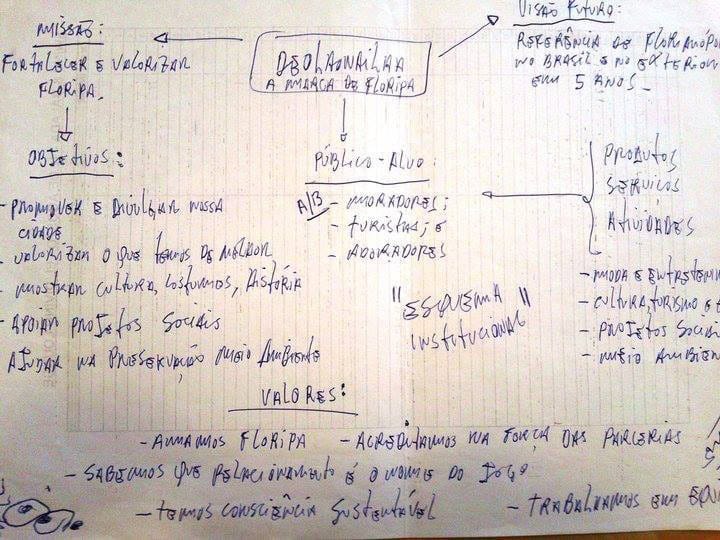 MISSÃO:
FORTALECER E VALORIZAR
FLORIPA.
A MARCA DE FLORIPA
VISÃO FUTURO:
REFERÊNCIA DE FLORIANÓPO
NO BRASIL E NO EXTERIOR
EM 5 ANOS
OBJETIVOS:
- PROMOVER E DIVULGAR NOSSA
CIDADE
- VALORIZAR O QUE TEMOS DE MELHOR
- MOSTRAR CULTURA, COSTUMES, HISTÓRIA
- APOIAR PROJETOS SOCIAIS
AJUDAR NA PRESERVAÇÃO MEIO AMBIENTE
PÚBLICO-ALVO:
A/B - MORADORES;
- TURISTAS; E
- ADORADORES
PRODUTOS
SERVIÇOS
ATIVIDADES
- MODA E ENTRETENIM
- CULTURA, TURISMO E
- PROJETOS SOCIAI
- MEIO AMBIEN
"ESQUEMA
INSTITUCIONAL"
VALORES:
- AMAMOS FLORIPA - ACREDITAMOS NA FORÇA DAS PARCERIAS
- SABEMOS QUE RELACIONAMENTO É O NOME DO JOGO
- TEMOS CONSCIÊNCIA SUSTENTÁVEL - TRABALHAMOS EM EQUI